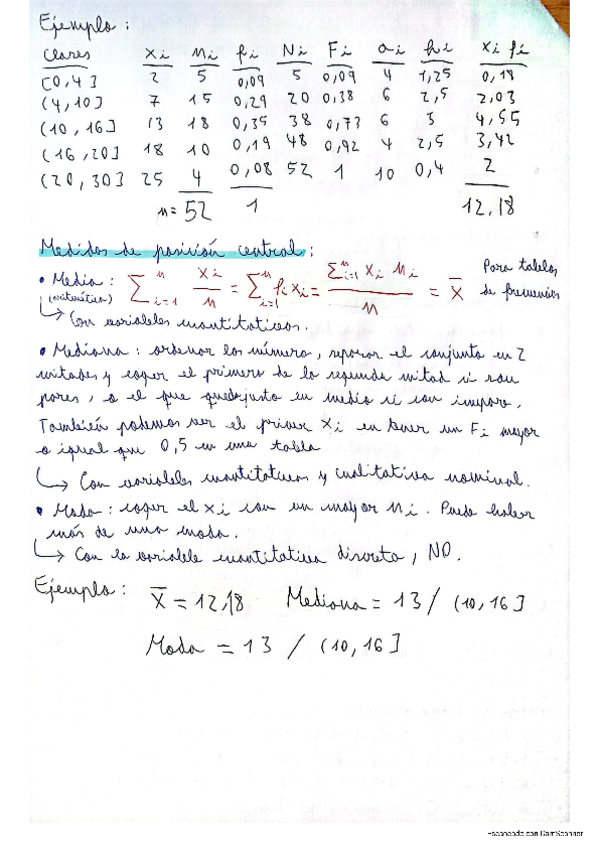 Ejemplo :
Clases xi ni fi Ni Fi ai hi xi fi
[0,4] 2 5 0,09 5 0,09 4 1,25 0,18
(4,10] 7 15 0,29 20 0,38 6 2,5 2,03
(10,16] 13 18 0,35 38 0,73 6 3 4,55
(16,20] 18 10 0,19 48 0,92 4 2,5 3,42
(20,30] 25 4 0,08 52 1 10 0,4 2
n= 52 1 12,18
Medidas de posición central :
• Media : ∑ⁿi=1 xi/n = ∑ⁿi=1 fi xi = ∑ⁿi=1 xi ni / n = x̄ Para tablas
(aritmética) de frecuencias
↳ Con variables cuantitativas.
• Mediana : ordenar los número, separar el conjunto en 2
mitades y coger el primero de la segunda mitad si son
pares, o el que quede justo en medio si son impares.
También podemos ver el primer xi en tener un Fi mayor
o igual que 0,5 en una tabla
↳ Con variables cuantitativas y cualitativa nominal.
• Moda : coger el xi con un mayor ni. Puede haber
más de una moda.
↳ Con la variable cuantitativa discreta, NO.
Ejemplo : x̄ = 12,18 Mediana = 13 / (10,16]
Moda = 13 / (10,16]
Escaneado con CamScanner